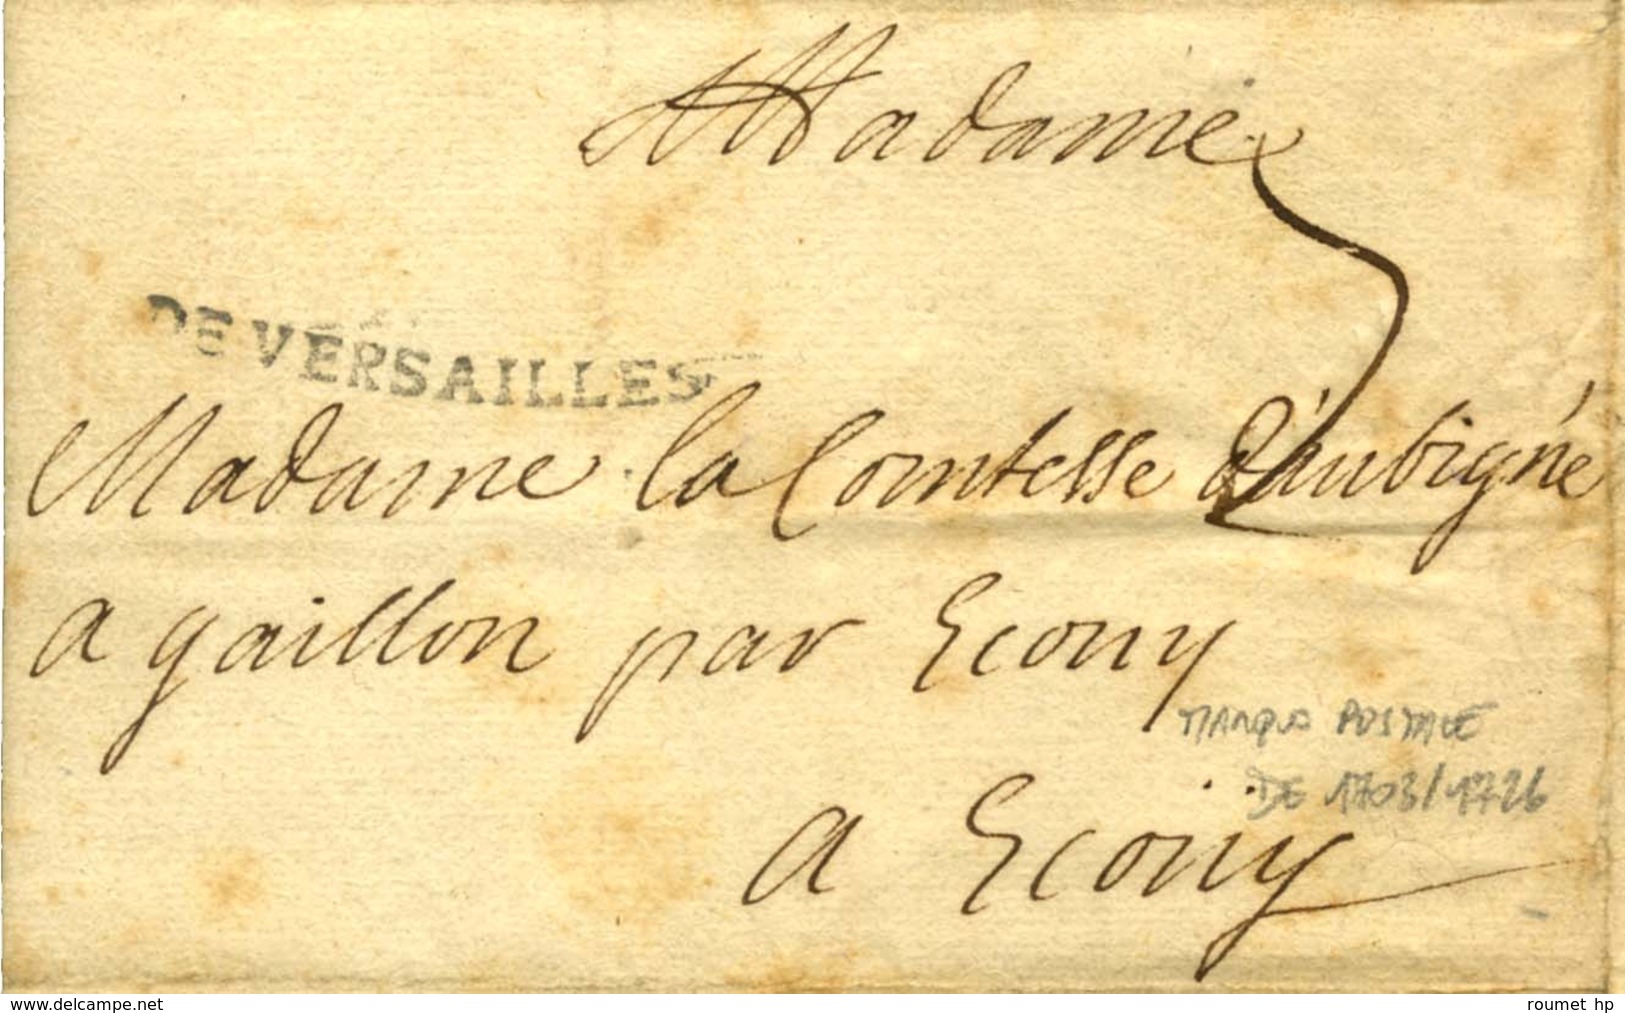 Madame
DE VERSAILLES
Madame la Comtesse d'aubigné
a gaillon par Ecouy
MARQUE POSTALE
DE 1703/1726
a Ecouy
www.delcampe.net
roumet_hp